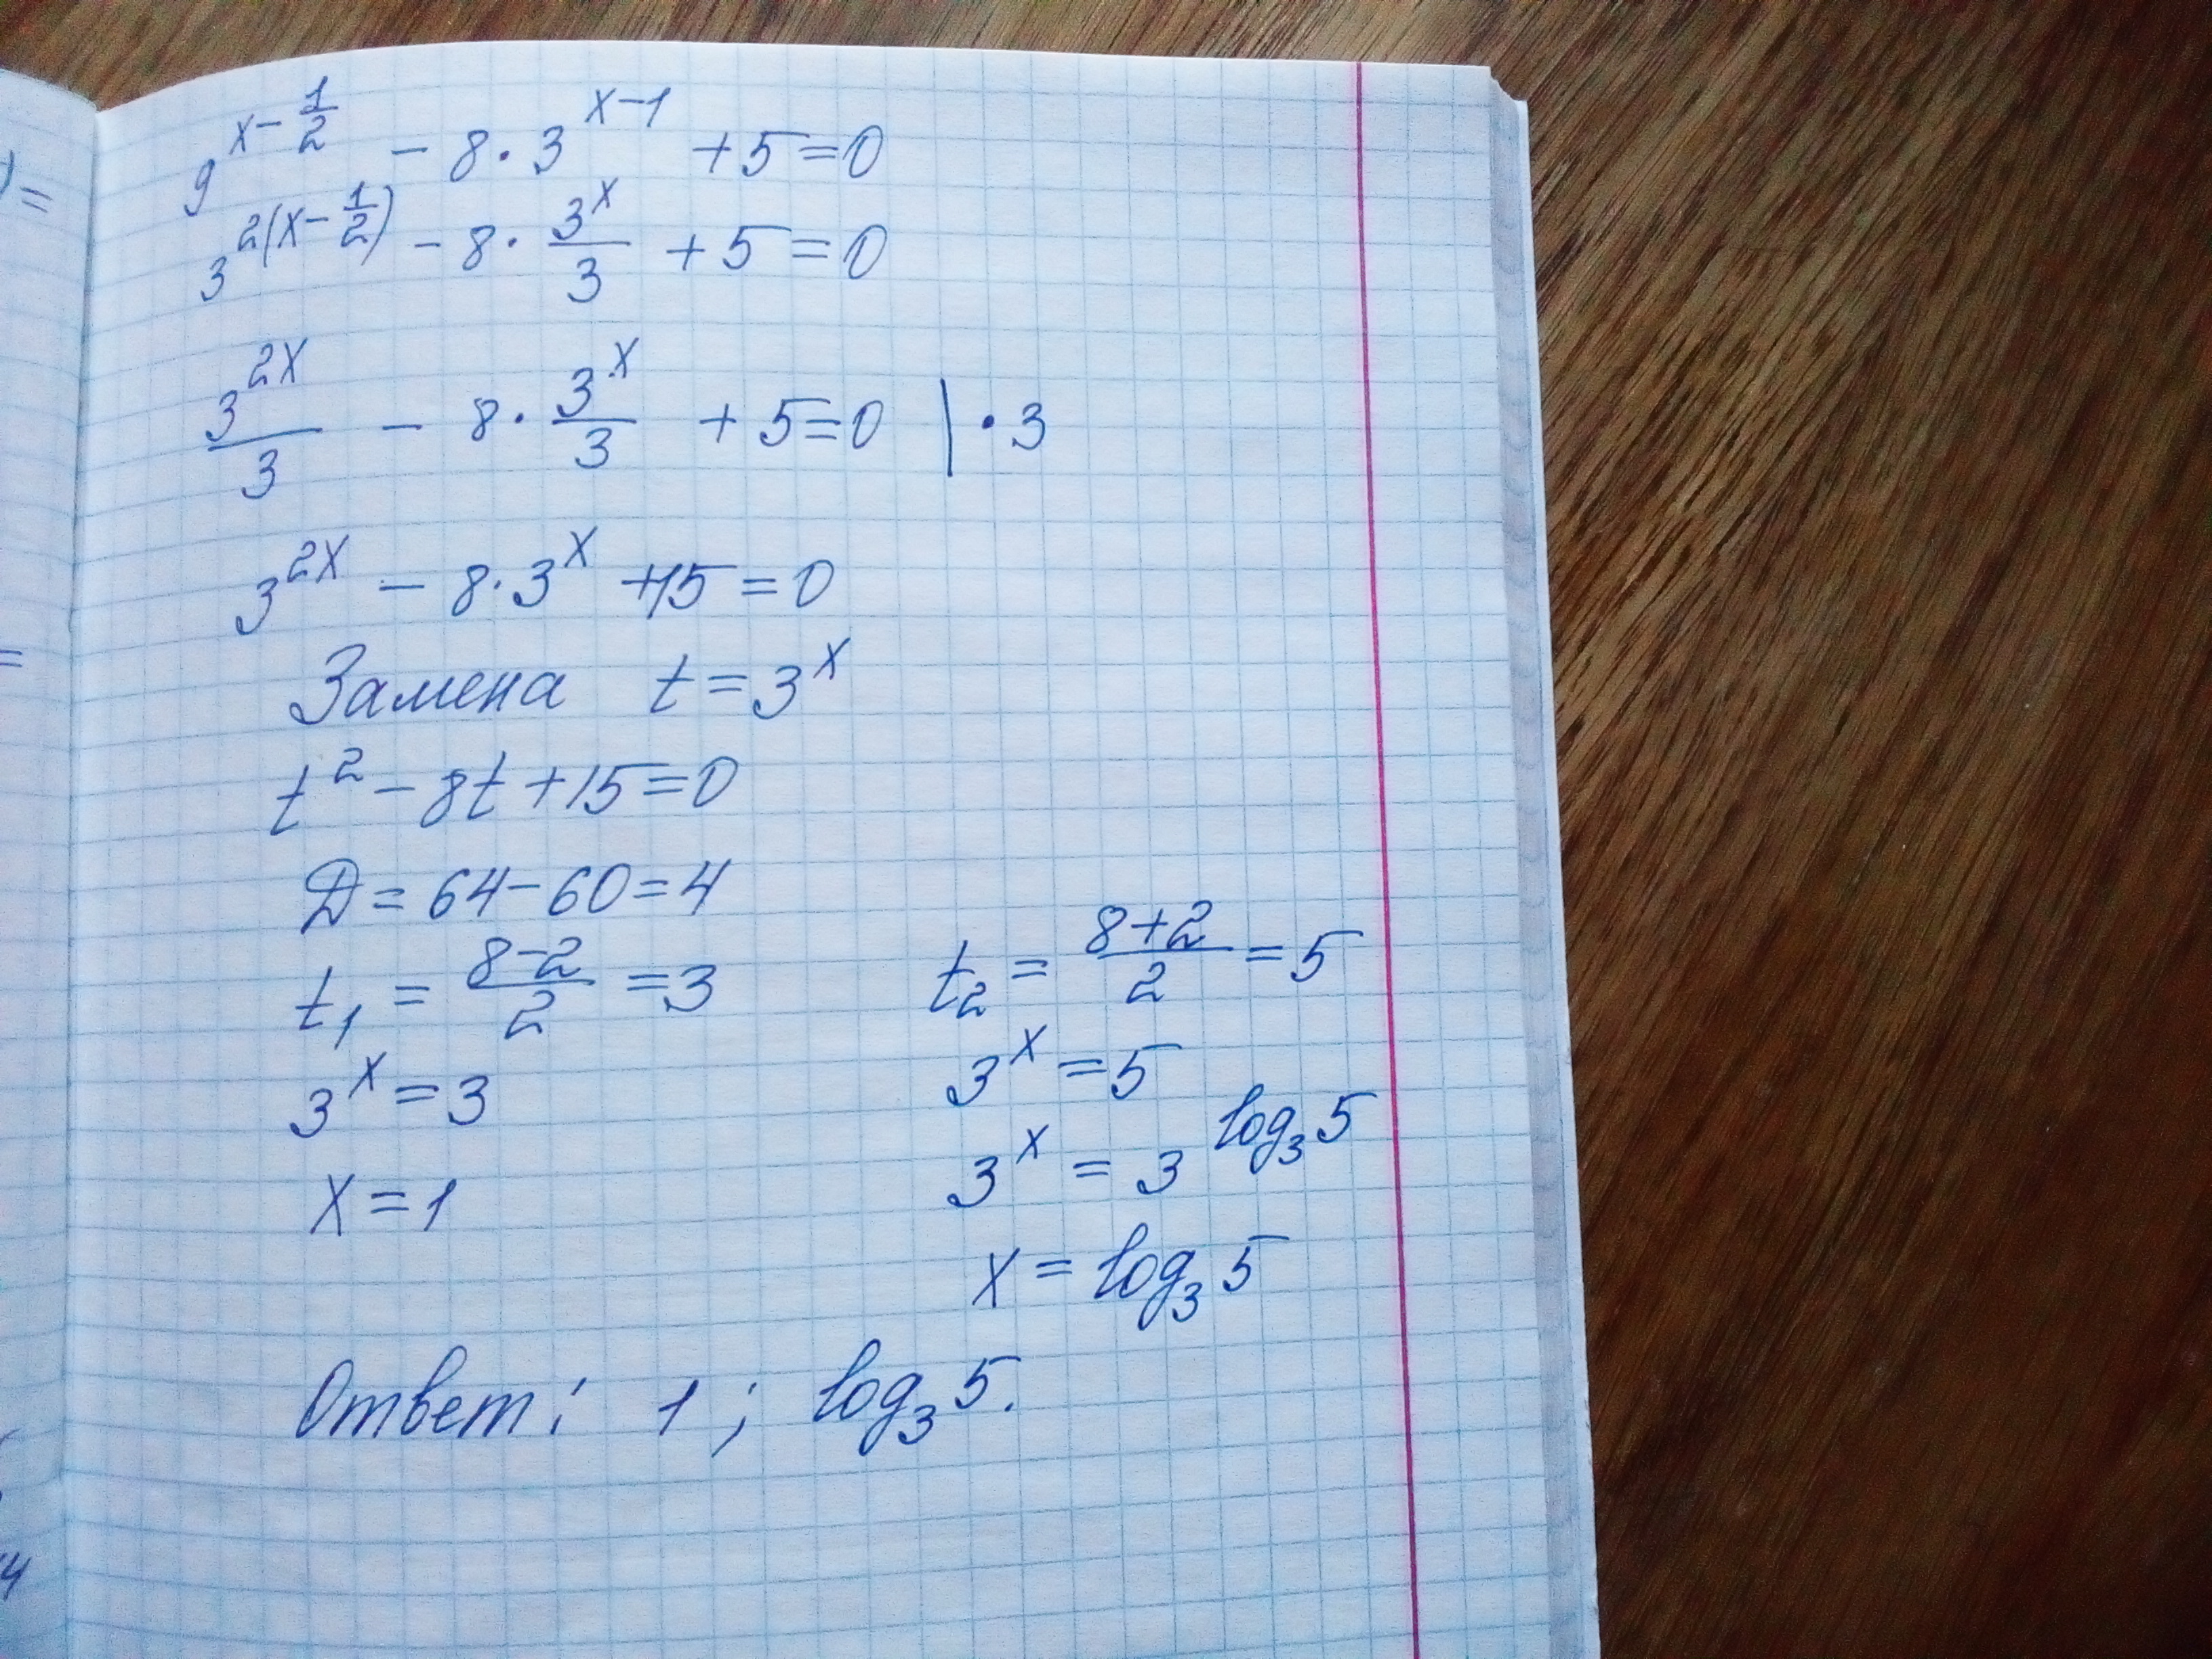 9^{x-\frac{1}{2}} - 8 \cdot 3^{x-1} + 5 = 0
3^{2(x-\frac{1}{2})} - 8 \cdot \frac{3^x}{3} + 5 = 0
\frac{3^{2x}}{3} - 8 \cdot \frac{3^x}{3} + 5 = 0 | \cdot 3
3^{2x} - 8 \cdot 3^x + 15 = 0
Замена t = 3^x
t^2 - 8t + 15 = 0
Д = 64 - 60 = 4
t_1 = \frac{8-2}{2} = 3
3^x = 3
x = 1
t_2 = \frac{8+2}{2} = 5
3^x = 5
3^x = 3^{log_3 5}
x = log_3 5
Ответ: 1; log_3 5.